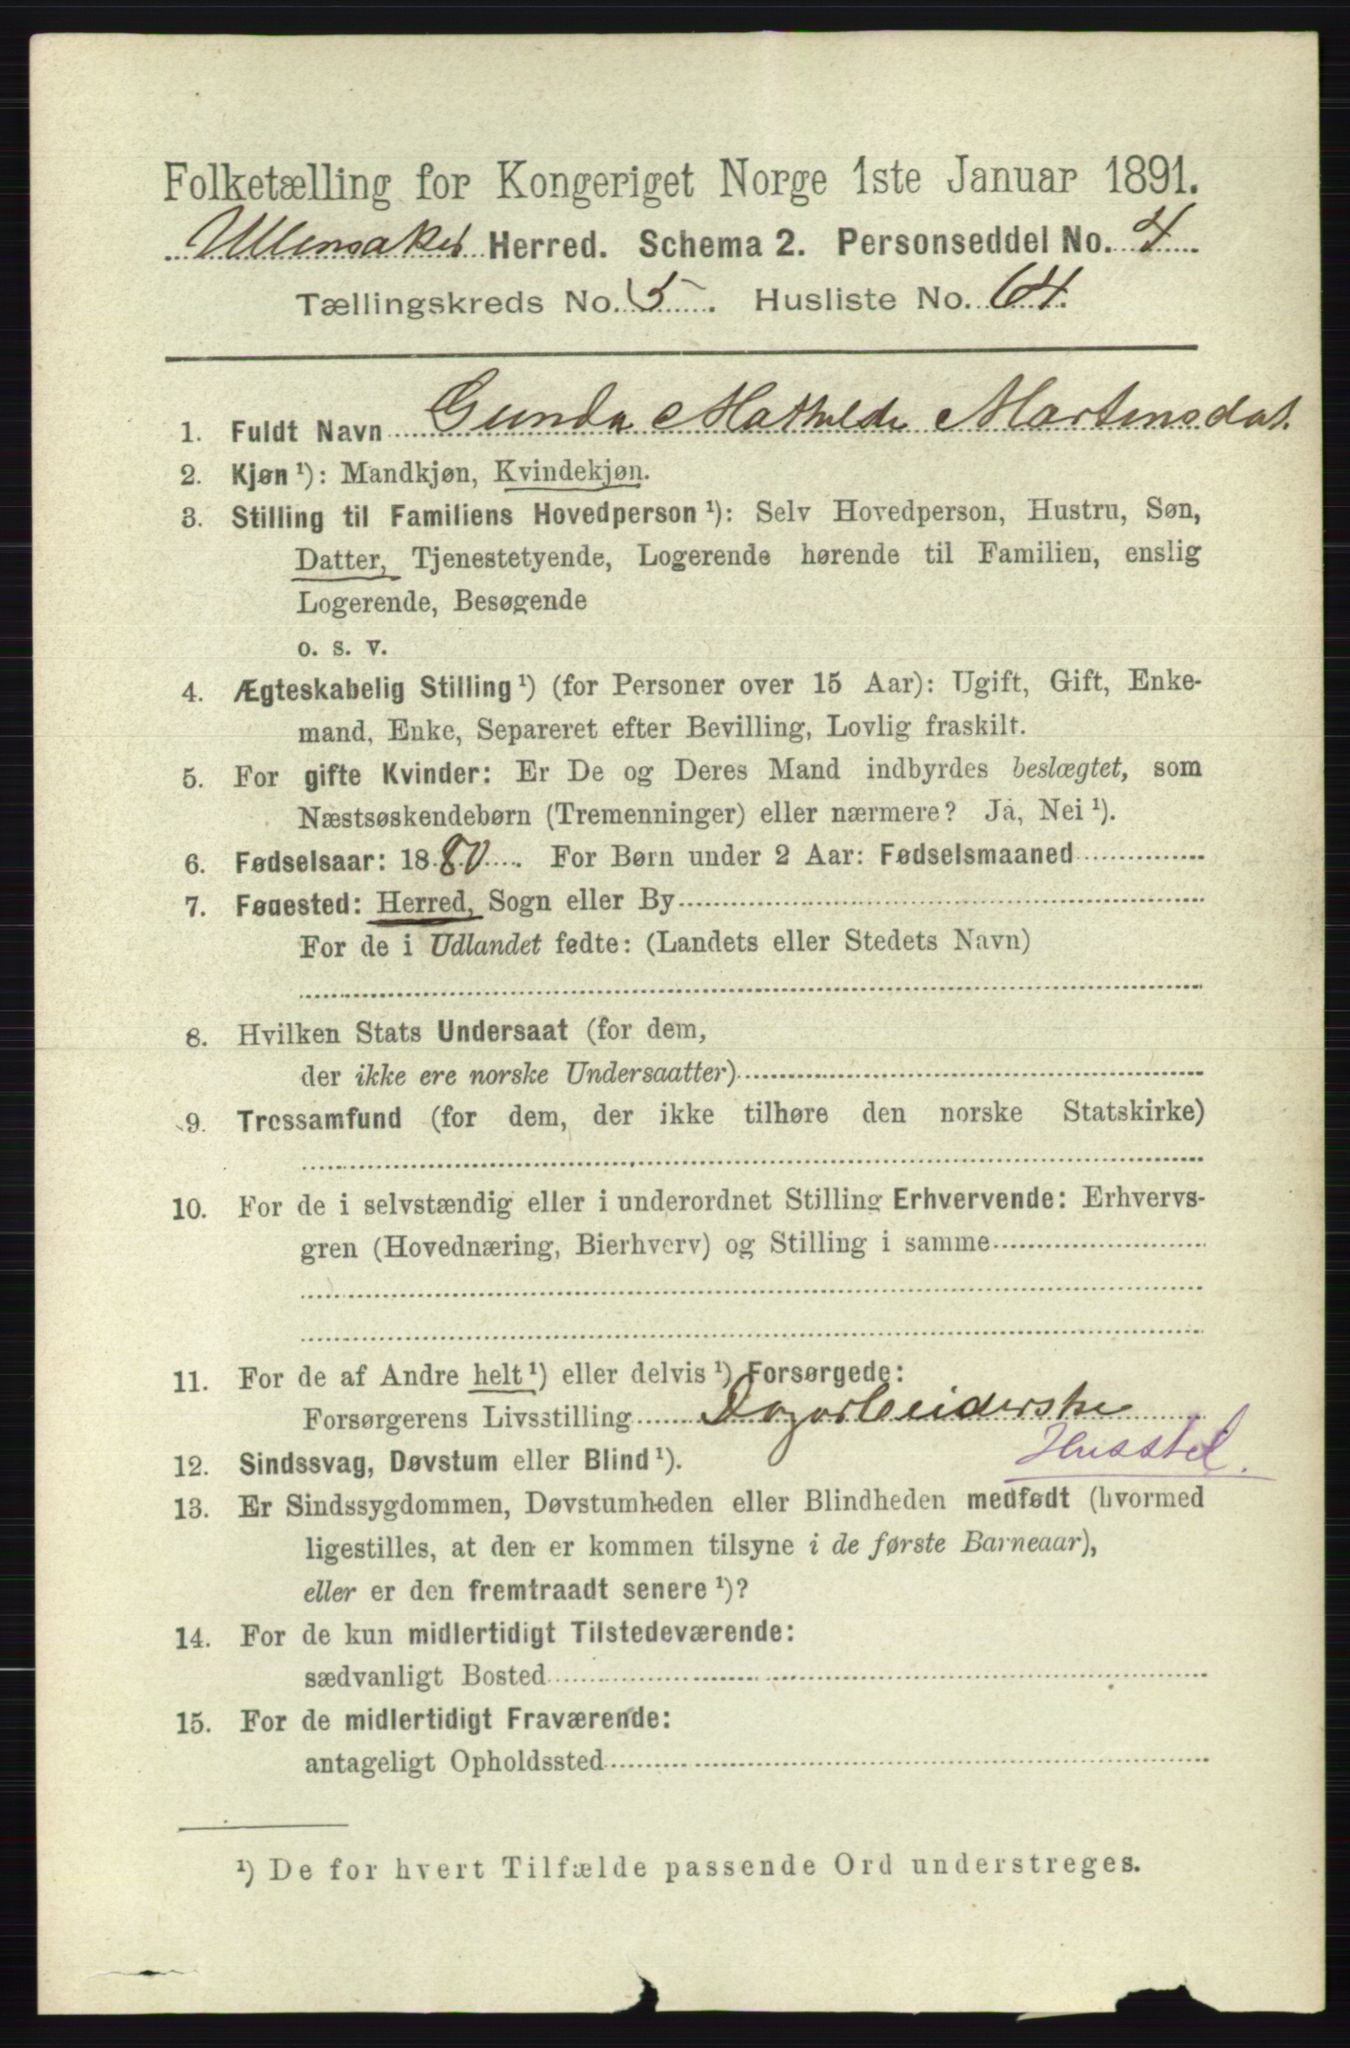 Folketælling for Kongeriget Norge 1ste Januar 1891.
Ullensaker Herred. Schema 2. Personseddel No. 4
Tællingskreds No. 5. Husliste No. 64.
1. Fuldt Navn Gunda Mathilde Martinsdat.
2. Kjøn ¹): Mandkjøn, Kvindekjøn.
3. Stilling til Familiens Hovedperson ¹): Selv Hovedperson, Hustru, Søn,
Datter, Tjenestetyende, Logerende hørende til Familien, enslig
Logerende, Besøgende
o. s. v.
4. Ægteskabelig Stilling ¹) (for Personer over 15 Aar): Ugift, Gift, Enke-
mand, Enke, Separeret efter Bevilling, Lovlig fraskilt.
5. For gifte Kvinder: Er De og Deres Mand indbyrdes beslægtet, som
Næstsøskendebørn (Tremenninger) eller nærmere? Ja, Nei ¹).
6. Fødselsaar: 1880. For Børn under 2 Aar: Fødselsmaaned
7. Fødested: Herred, Sogn eller By
For de i Udlandet fødte: (Landets eller Stedets Navn)
8. Hvilken Stats Undersaat (for dem,
der ikke ere norske Undersaatter)
9. Trossamfund (for dem, der ikke tilhøre den norske Statskirke)
10. For de i selvstændig eller i underordnet Stilling Erhvervende: Erhvervs-
gren (Hovednæring, Bierhverv) og Stilling i samme
11. For de af Andre helt ¹) eller delvis ¹) Forsørgede:
Forsørgerens Livsstilling Dagarbeiderske
Husstel.
12. Sindssvag, Døvstum eller Blind ¹).
13. Er Sindssygdommen, Døvstumheden eller Blindheden medfødt (hvormed
ligestilles, at den er kommen tilsyne i de første Barneaar),
eller er den fremtraadt senere ¹)?
14. For de kun midlertidigt Tilstedeværende:
sædvanligt Bosted
15. For de midlertidigt Fraværende:
antageligt Opholdssted
¹) De for hvert Tilfælde passende Ord understreges.